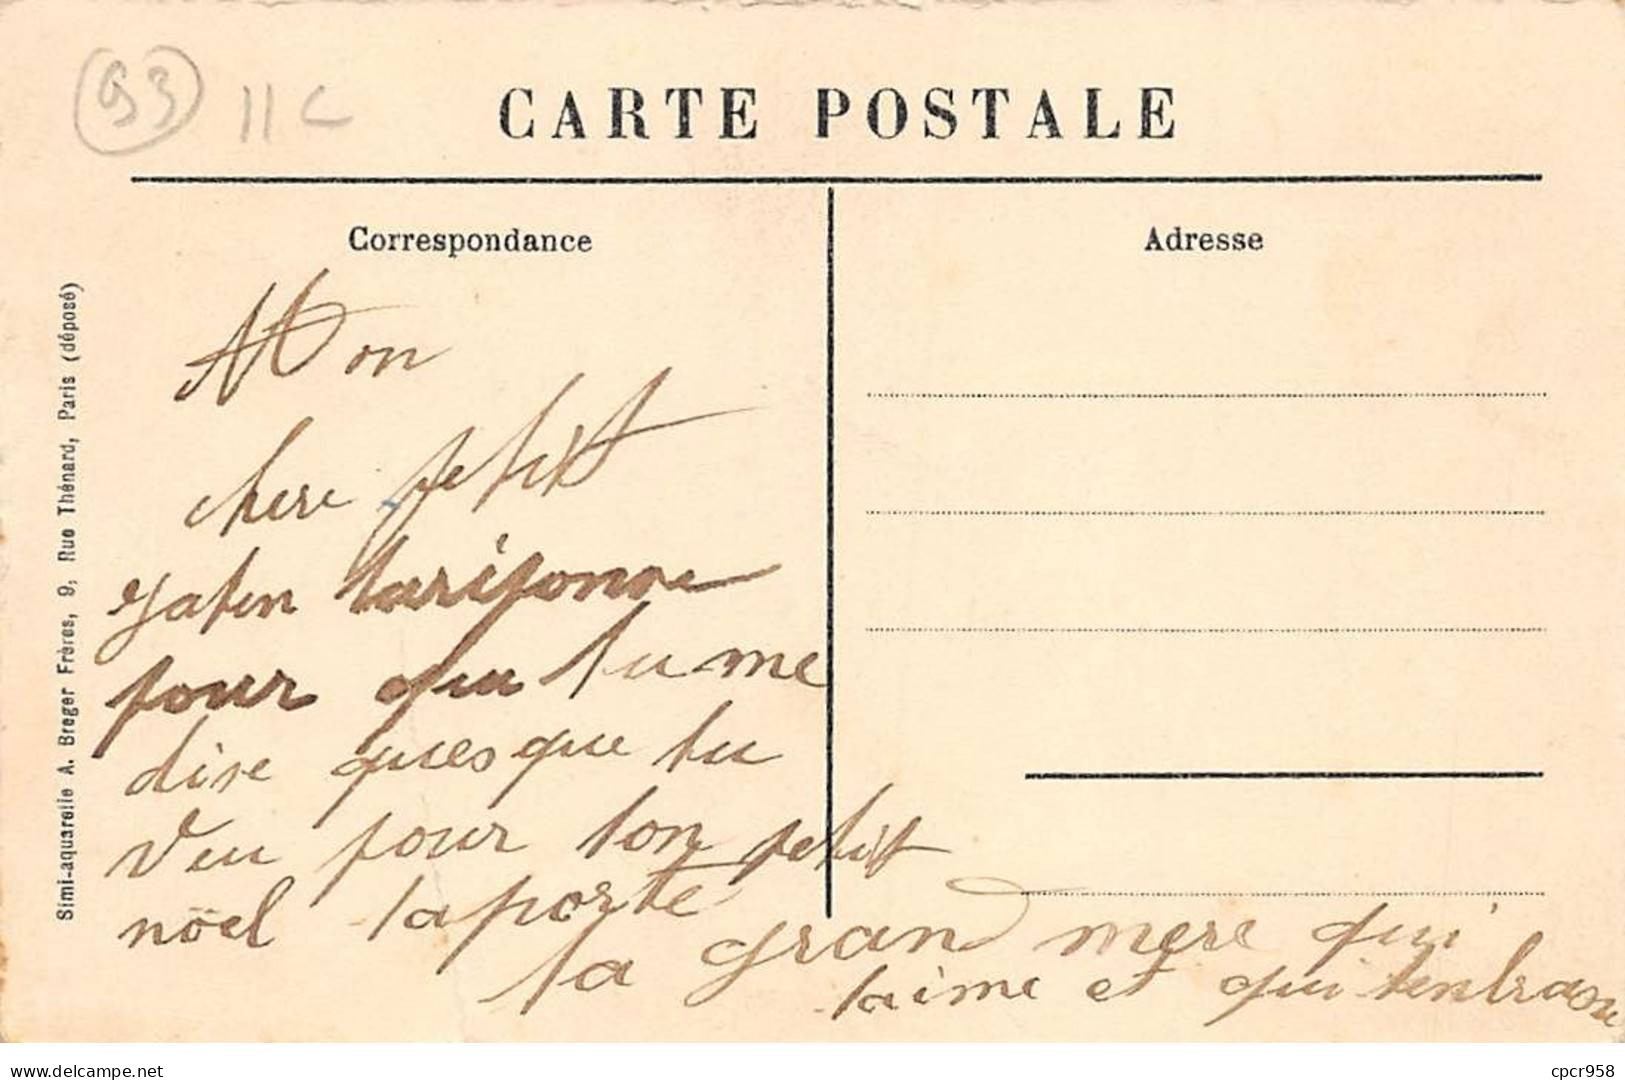 93 11C
CARTE POSTALE
Correspondance
Adresse
Simi-aquarelle A. Breger Frères, 9, Rue Thénard, Paris (déposé)
Mon
chere petit
pour qu tu me
dire quesque tu
veu pour ton petit
nöel taporte
ta grand mere qui
taime et qui tenbrasse
delcampe.net
cpcr958